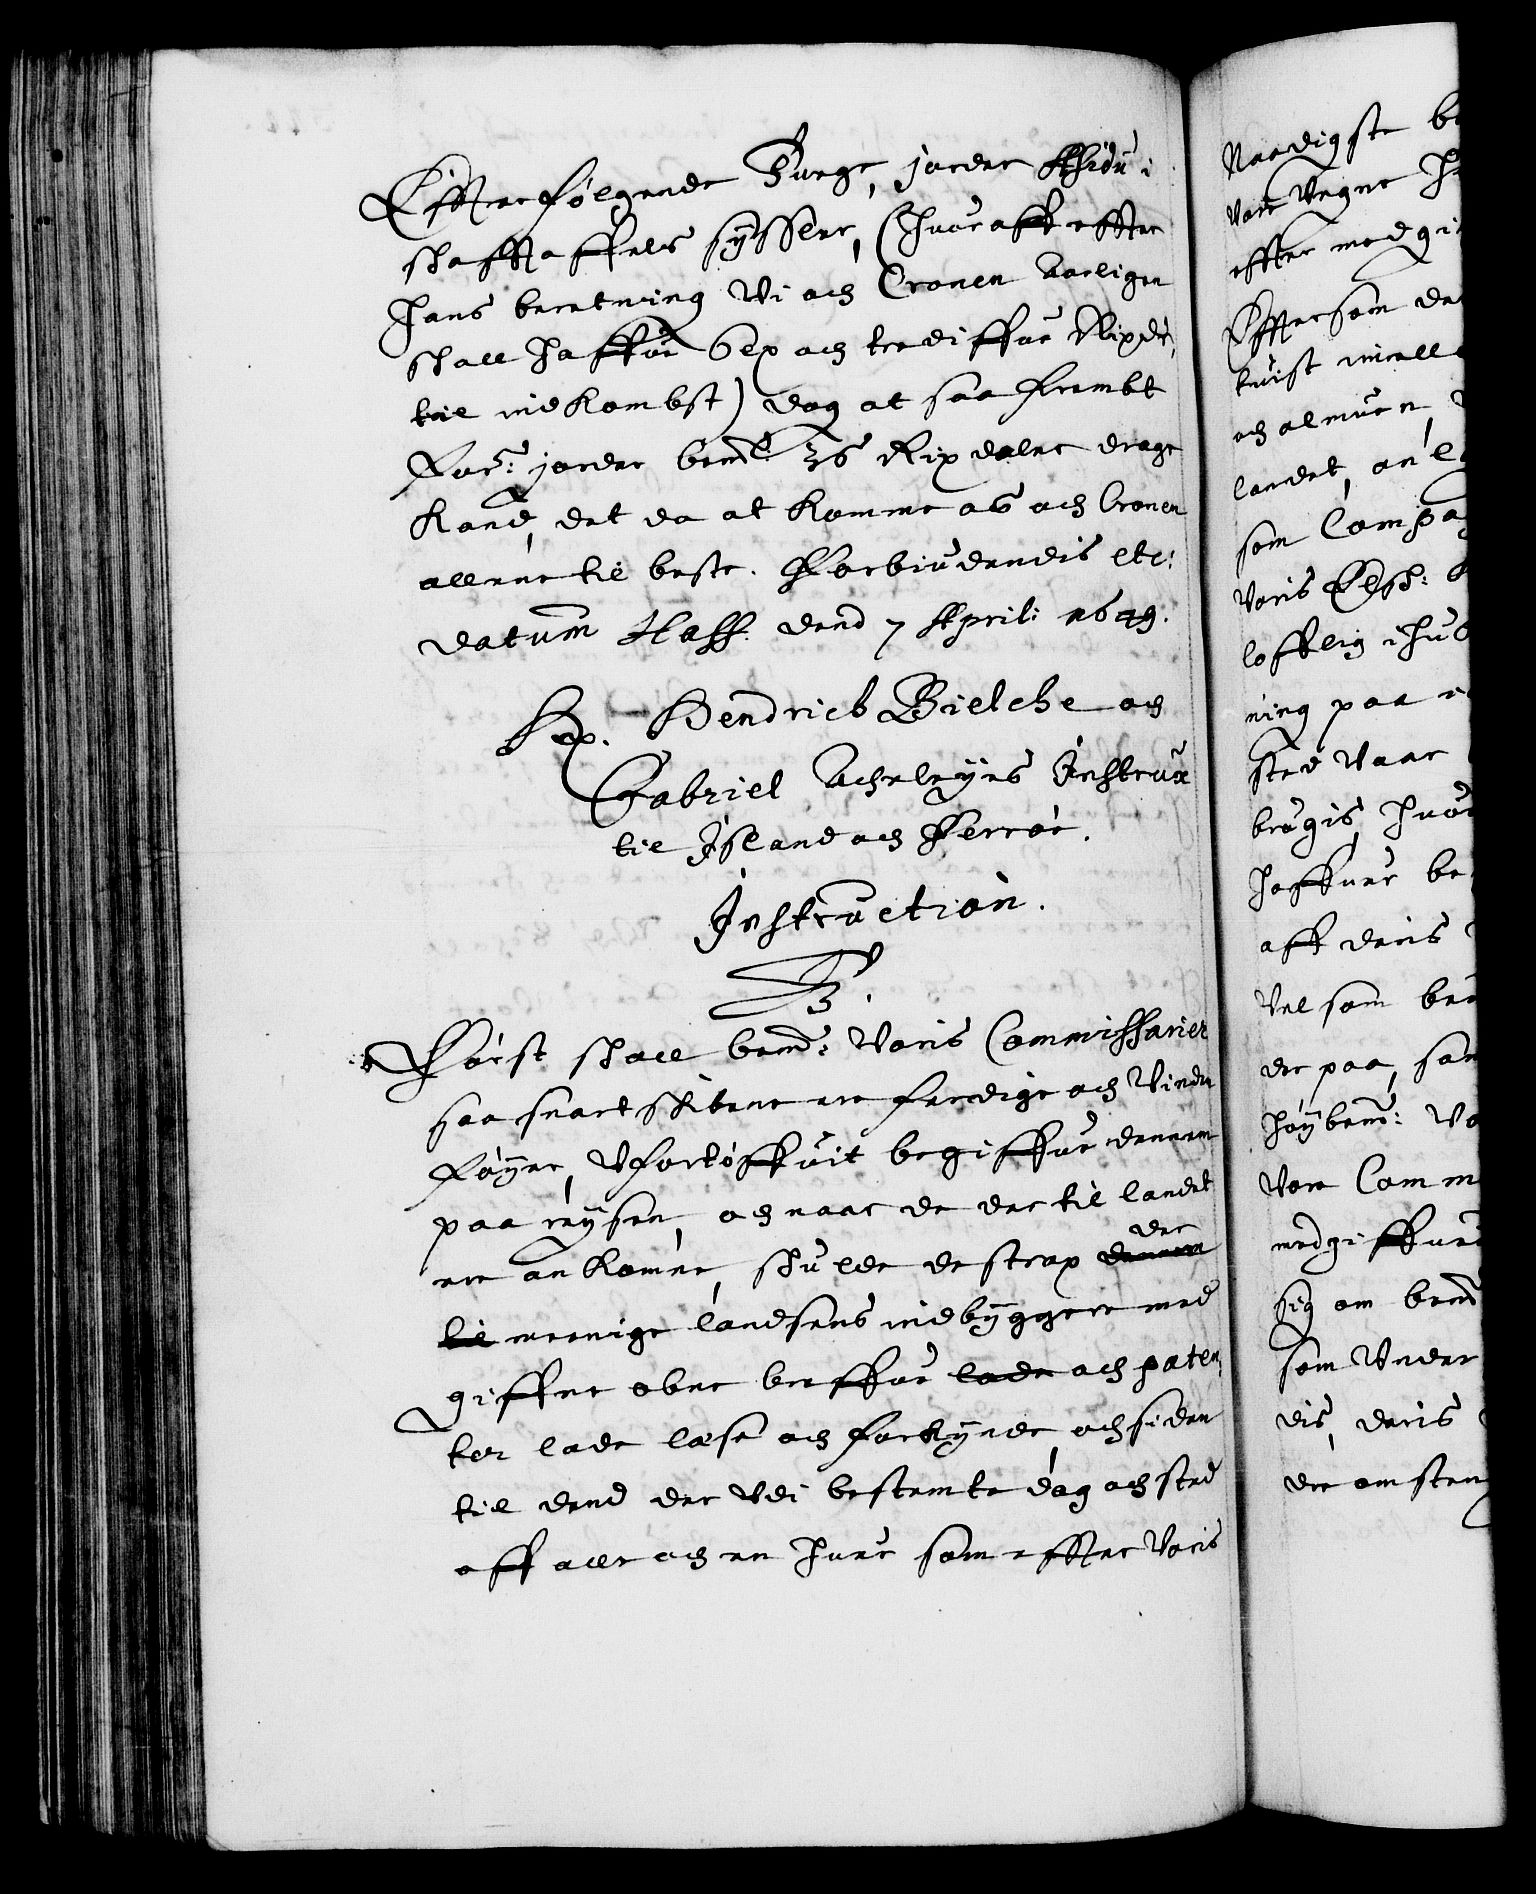 Efterfølgende Tuege, jorder Sßidu i
Skafftaffels sÿsseler, (huor aff effter
hans beretning Vi och Cronen Aarligen
skall haffue Sex och trediffue Rixdr,
til indkombst) dog at saa frembt
For: jorder bemt: 36 Rixdaler drage
kand, det da at komme os och Cronen
allene til beste. Forbiudendis etc:
datum Haff: dend 7 April: 1649.
Hendrick Bielche och
Gabriel Acheleÿes Instrux
til Island och Ferröe.
Instruction.
F 3.
Först skall bemt: Voris Commissarier
saa snart skibene ere ferdige och Vinden
föÿer, Vfortöffuit begiffue dennem
paa reÿsen, och naar de der til landet
der
ere ankomne, skulle de strax dennem
til meenige landsens indbÿggere med
giffne obne breffue lade och paten,
ter lade læse och forkÿnde, och siden
till dend der Vdi bestemte dag och sted
aff alle och en huer som effter Voris
Naadigste be
Vore Vegne h
effter medgi
Eftersom de
tuist imell
och almuen, V
landet, anl
som Compag
Voris Elsk:
lofflig i hu
ning paa i
sted Vaar
brugis, huor
haffuer be
aff deris
Vel som bru
der paa, sam
höÿbemt: Vo
Vore Comm
medgiffue
sig om bemt
som Vnder
dis, deris
der omsten